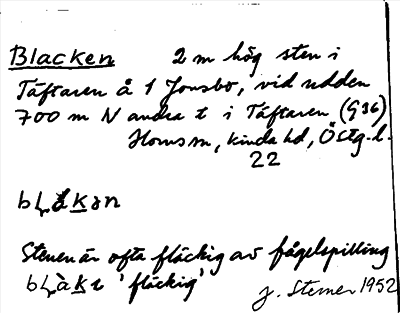 Blacken 2 m hög sten i
Täftaren å 1 Jonsbo, vid udden
700 m N andra t i Täftaren (G36)
Horns sn, Kinda hd, Östg. l.
22
Stenen är ofta fläckig av fågelspilling
'fläckig'
J. Sterner 1952